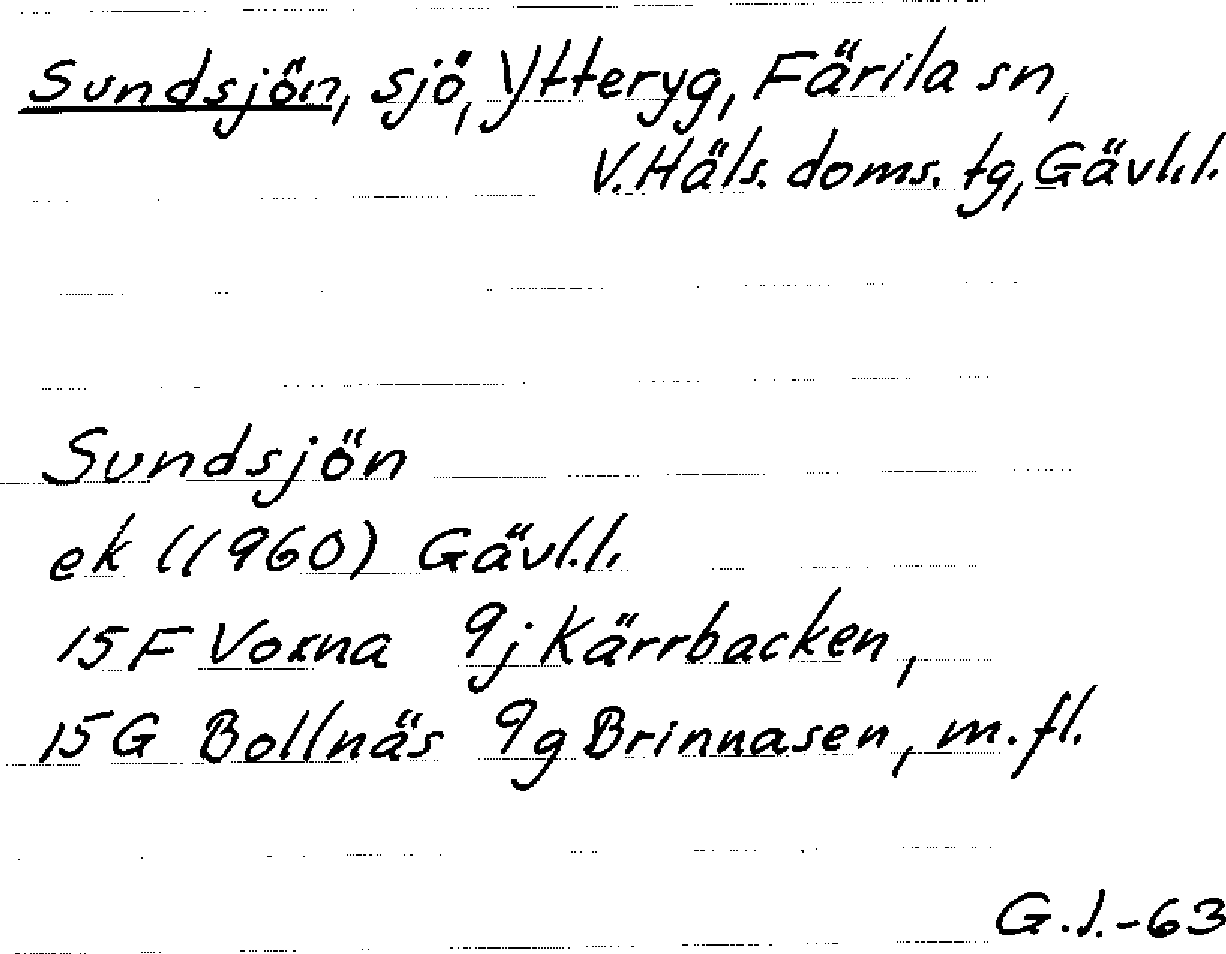 Sundsjön, sjö, Ytteryg, Färila sn,
V. Häls. doms. tg, Gävl.l.
Sundsjön
ek (1960) Gävl.l.
15 F Voxna 9j Kärrbacken,
15 G Bollnäs 9g Brinnasen, m.fl.
G.J.-63